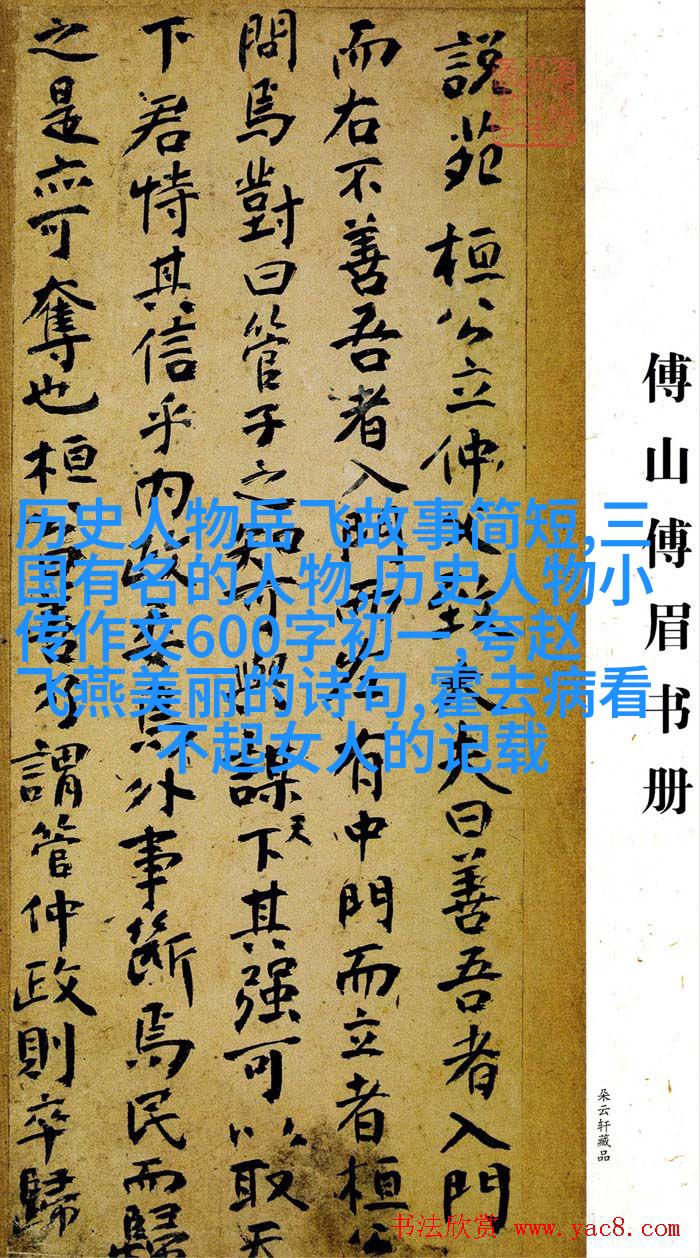 傅山傅眉书册
朵云轩藏品
說苑 桓公立仲父致大夫曰善吾者入門
而右不善吾者入門而左有中門而立者桓公
問焉對曰管子之知可與謀天下其强可以取天
下君恃其信乎內政委焉外事斷焉民而歸
之是亦可奪也桓公曰善乃謂管仲政則卒歸
历史人物岳飞故事简短,三
国有名的人物,历史人物小
传作文600字初一,夸赵
飞燕美丽的诗句,霍去病看
不起女人的记载
书法欣赏 www.yac8.com